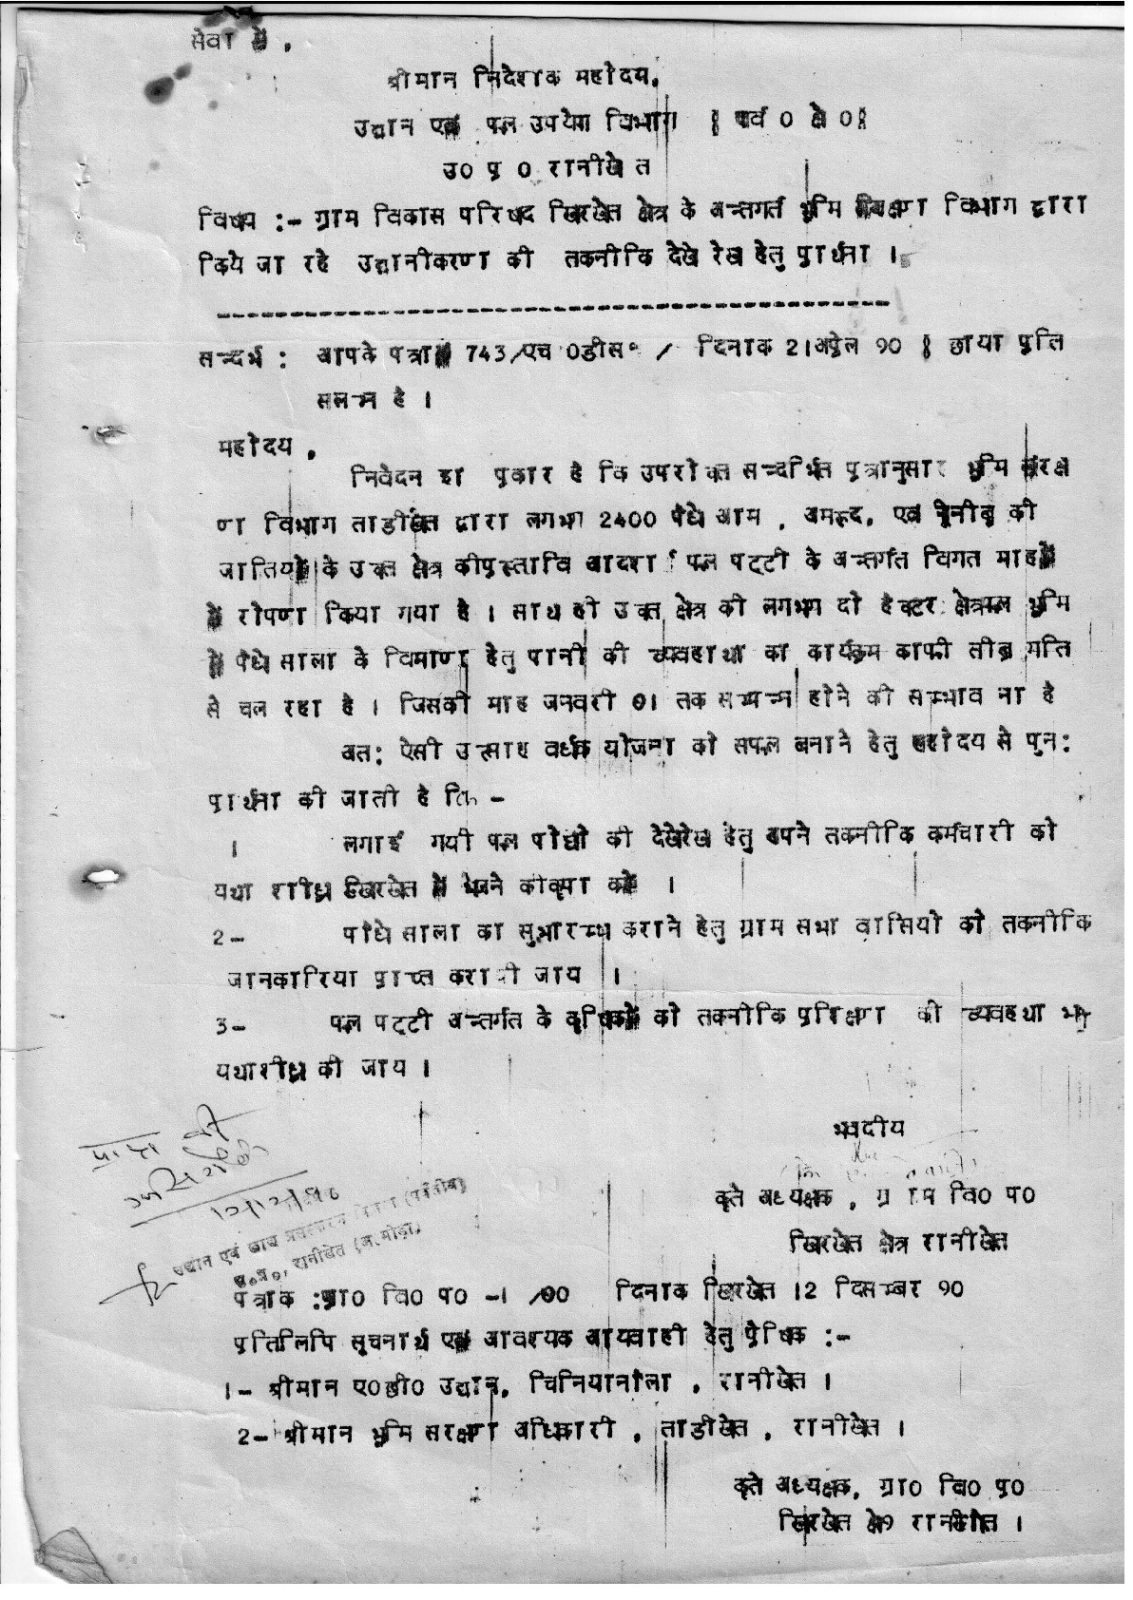 सेवा में ,
श्रीमान निदेशक महोदय,
उद्यान एवं फल उपयोग विभाग । पर्व 0 क्षे 0।
उ0 प्र 0 रानीखेत
विषय :- ग्राम विकास परिषद खिरखेत क्षेत्र के अन्तगर्त भूमि विभाग द्वारा
किये जा रहे उद्यानीकरण की तकनीकि देखे रेख हेतु प्रार्थना ।
सन्दर्भ : आपके पत्रांक 743/एच 0डीस० / दिनाक 21अप्रेल 90 । छाया प्रति
सलग्न है ।
महोदय ,
निवेदन इा प्रकार है कि उपरोक्त सन्दर्भित पत्रानुसार भूमि संरक्ष
ण विभाग ताडीखेत द्वारा लगभग 2400 पौधे आम , अमरूद, एवं की
जातियों के उक्त क्षेत्र की प्रस्तावि आदर्श फल पट्टी के अन्तर्गत विगत माह में
में रोपण किया गया है । साथ ही उक्त क्षेत्र की लगभग दो हैक्टर क्षेत्रफल भूमि
में पौधे साला के निमाण हेतु पानी की व्यवहाथा का कार्यक्रम काफी तीब्र गति
से चल रहा है । जिसकी माह जनवरी 91 तक सम्पन्न होने की सम्भाव ना है
अत: ऐसी उत्साह वर्धक योजना को सफल बनाने हेतु महोदय से पुन:
प्रार्थना की जाती है कि -
1 लगाई गयी फल पोधो की देखेरेख हेतु अपने तकनीकि कर्मचारी को
यथा शीघ्र खिरखेत में भेजने की कृपा करें ।
2- पौधे साला का सुभारम्भ कराने हेतु ग्राम सभा वासियो को तकनीकि
जानकारिया प्राप्त करायी जाय ।
3- फल पट्टी अन्तर्गत के कृषिकों को तकनीकि प्रशिक्षण की व्यवहथा भी
यथाशीघ्र की जाय ।
भवदीय
प्राप्त की
12/12/90
कृते अध्यक्षक , ग्राम वि0 प0
खिरखेत क्षेत्र रानीखेत
उद्यान एवं खाद्य प्रसंस्करण (पर्वतीय)
उ०प्र०, रानीखेत (अल्मोड़ा)
पत्राक :ग्रा0 वि0 प0 -1 /90 दिनाक खिरखेत 12 दिसम्बर 90
प्रतिलिपि सूचनार्थ एवं आवश्यक आयवाही हेतु प्रेषिक :-
1- श्रीमान ए0डी0 उद्यान, चिनियानौला , रानीखेत ।
2- श्रीमान भूमि सरक्षण अधिकारी , ताडीखेत , रानीखेत ।
कृते अध्यक्षक, ग्रा0 वि0 प0
खिरखेत क्षे0 रानीखेत ।